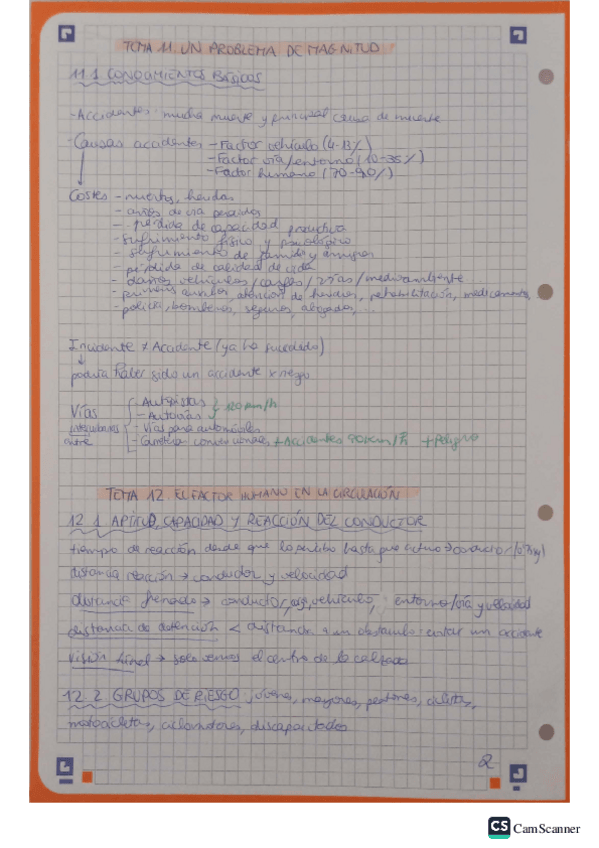 TEMA 11. UN PROBLEMA DE MAGNITUD
11.1 CONOCIMIENTOS BÁSICOS
- Accidentes: mucha muerte y principal causa de muerte
- Causas accidentes - Factor vehículo (4-13%)
- Factor vía/entorno (10-35%)
- Factor humano (70-90%)
Costes - muertos, heridas
- años de vida perdidos
- pérdida de capacidad productiva
- sufrimiento físico y psicológico
- sufrimiento de familia y amigos
- pérdida de calidad de vida
- daños vehículos/cargas/vías/medioambiente
- primeros auxilios, atención de heridos, rehabilitación, medicamentos
- policía, bomberos, seguros, abogados,...
Incidente ≠ Accidente (ya ha sucedido)
↓
podría haber sido un accidente x negro
Vías - Autopistas
interurbanas - Autovías } 120 km/h
- Vías para automóviles
- Carretera convencionales + Accidentes 90 km/h + peligro
TEMA 12. EL FACTOR HUMANO EN LA CIRCULACIÓN
12.1 APTITUD, CAPACIDAD Y REACCIÓN DEL CONDUCTOR
tiempo de reacción desde que lo percibo hasta que actuo → conductor
distancia reacción → conductor y velocidad
distancia frenado → conductor, vehículo, entorno/vía y velocidad
distancia de detención < distancia a un obstáculo: evitar un accidente
visión túnel → solo vemos el centro de la calzada
12.2 GRUPOS DE RIESGO: jóvenes, mayores, peatones, ciclistas,
motocicletas, ciclomotores, discapacitados
2
CS CamScanner